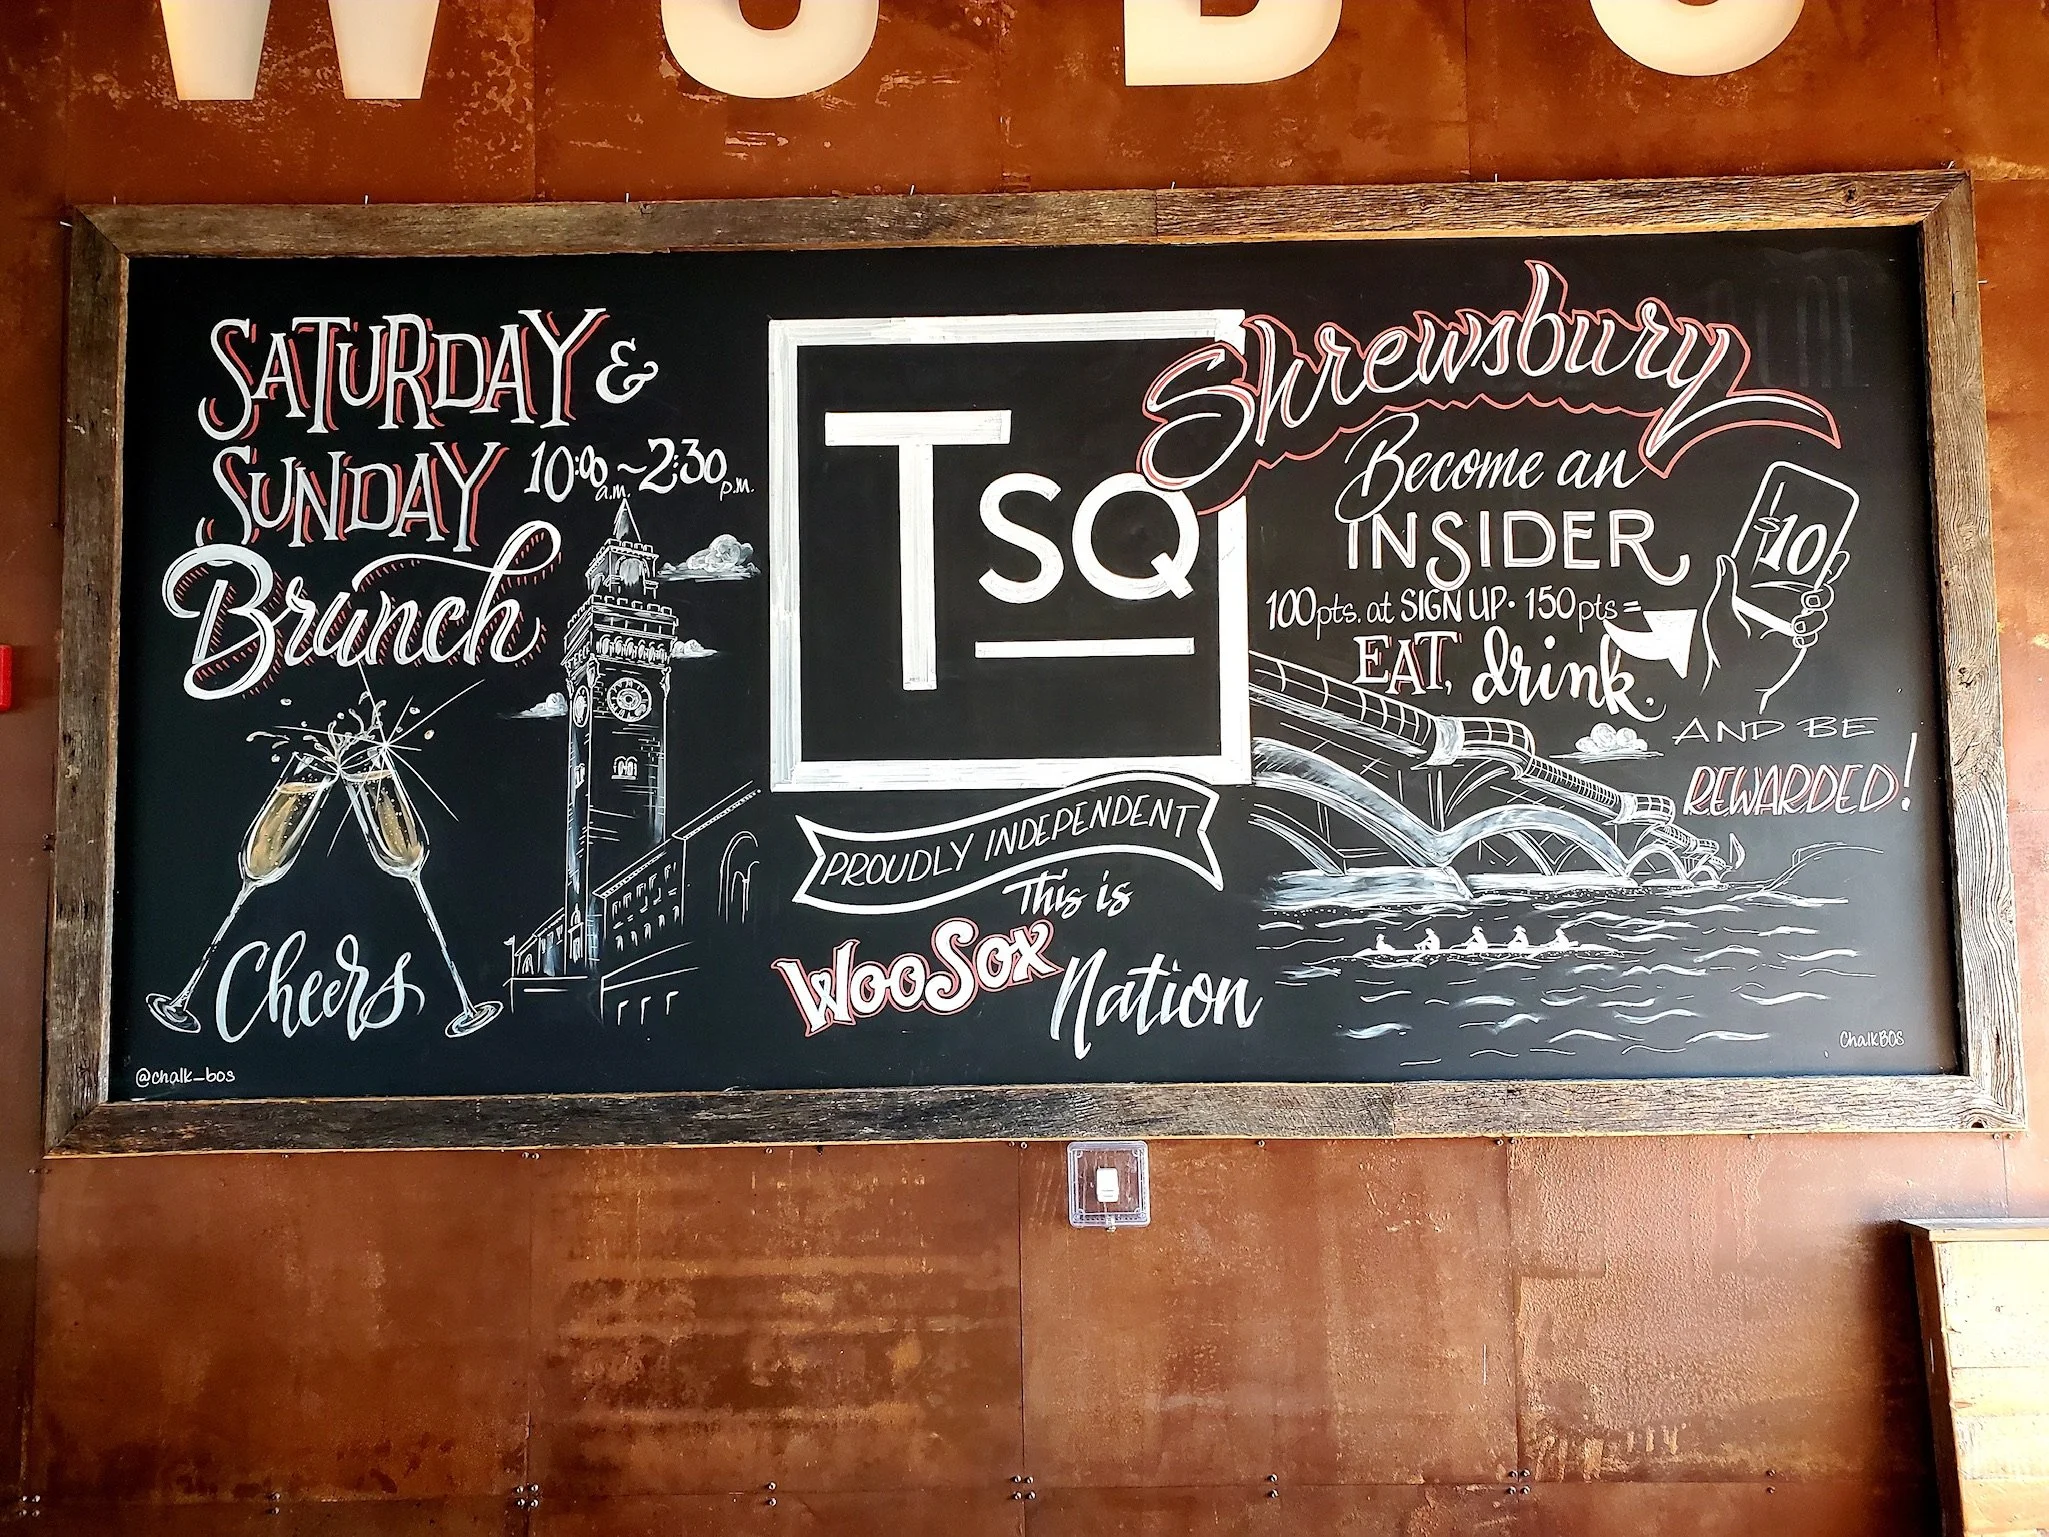 SATURDAY &
SUNDAY 10:00 a.m. ~ 2:30 p.m.
Brunch
Cheers
@chalk_bos
TSQ
PROUDLY INDEPENDENT
This is
WooSox
Nation
Shrewsbury
Become an
INSIDER
100pts. at SIGN UP • 150pts =
EAT, drink.
$10
AND BE
REWARDED!
ChalkBOS